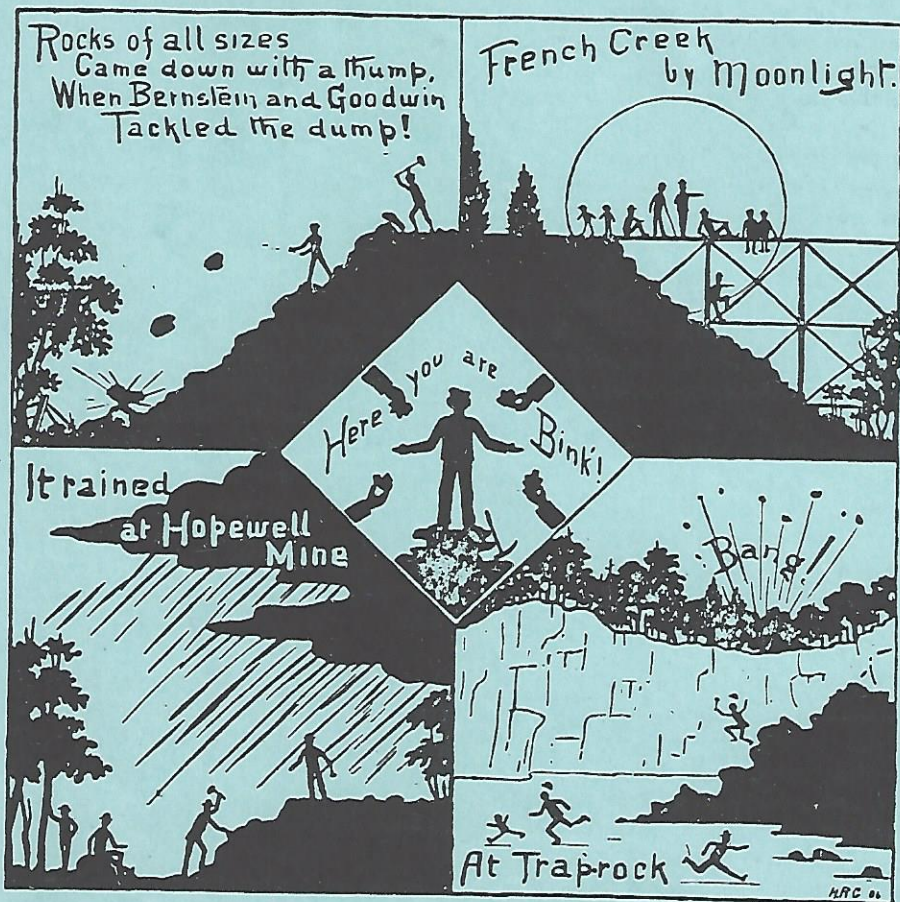 Rocks of all sizes
Came down with a thump,
When Bernstein and Goodwin
Tackled the dump!
French Creek
by Moonlight.
Here you are
Bink!
It rained
at Hopewell
Mine
Bang!
At Traprock
HRC 06